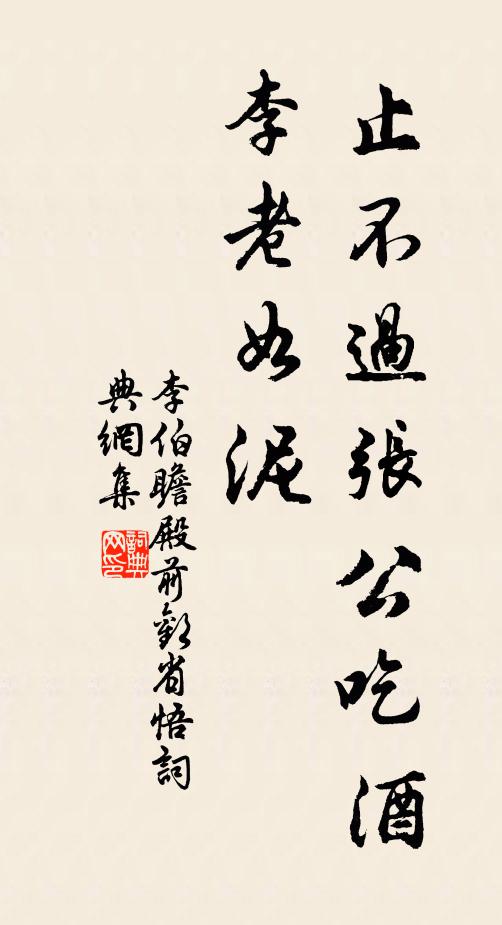 止不過張公吃酒
李老如泥
李伯瞻殿前歡省悟詞
典網集
詞典網印